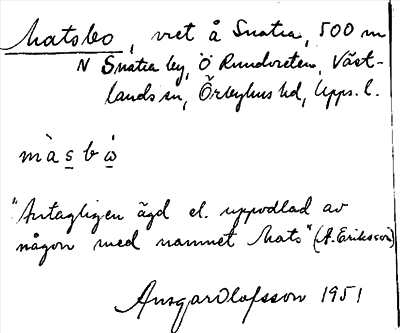 Matsbo, vret å Snatra, 500 m
N Snatra by, Ö Rundvreten, Väst-
lands sn, Örbyhus hd, Upps. l.
màsbò
"Antagligen ägd el. uppodlad av
någon med namnet Mats" (A. Eriksson)
Ansgar Olofsson 1951